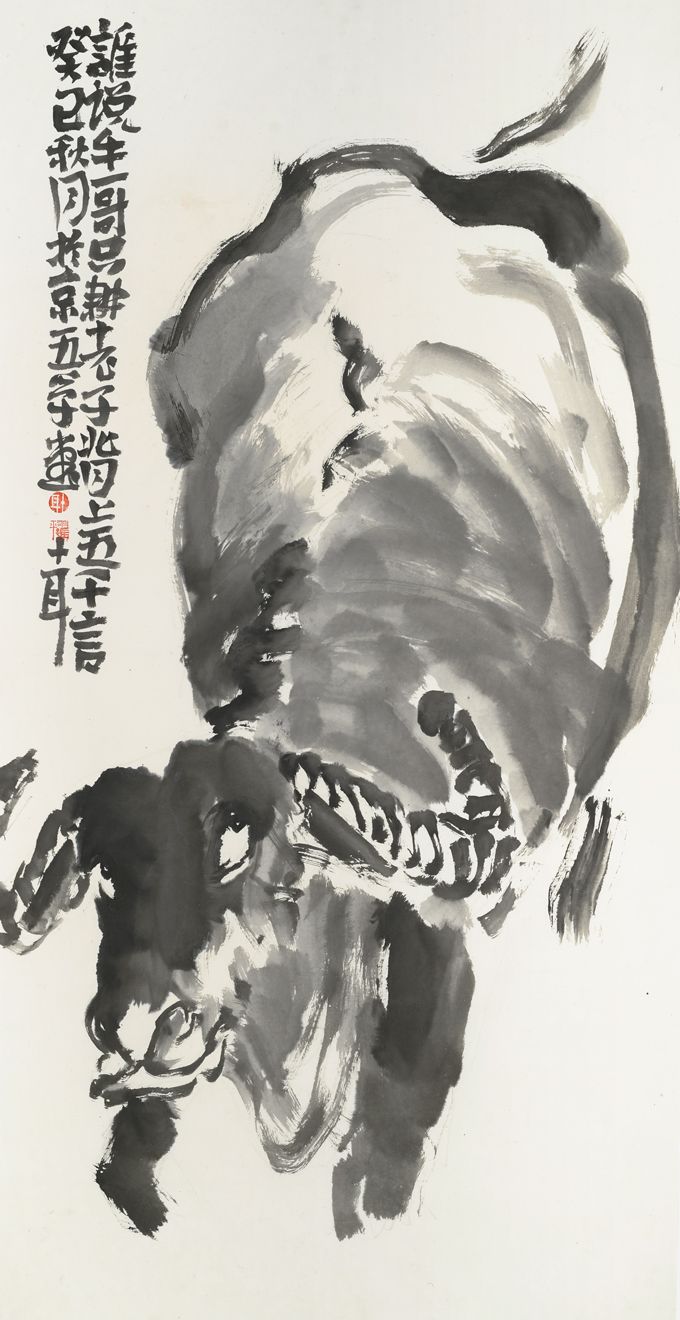 誰说牛哥只耕老子背上五千言
癸巳秋月於京畫
十耳